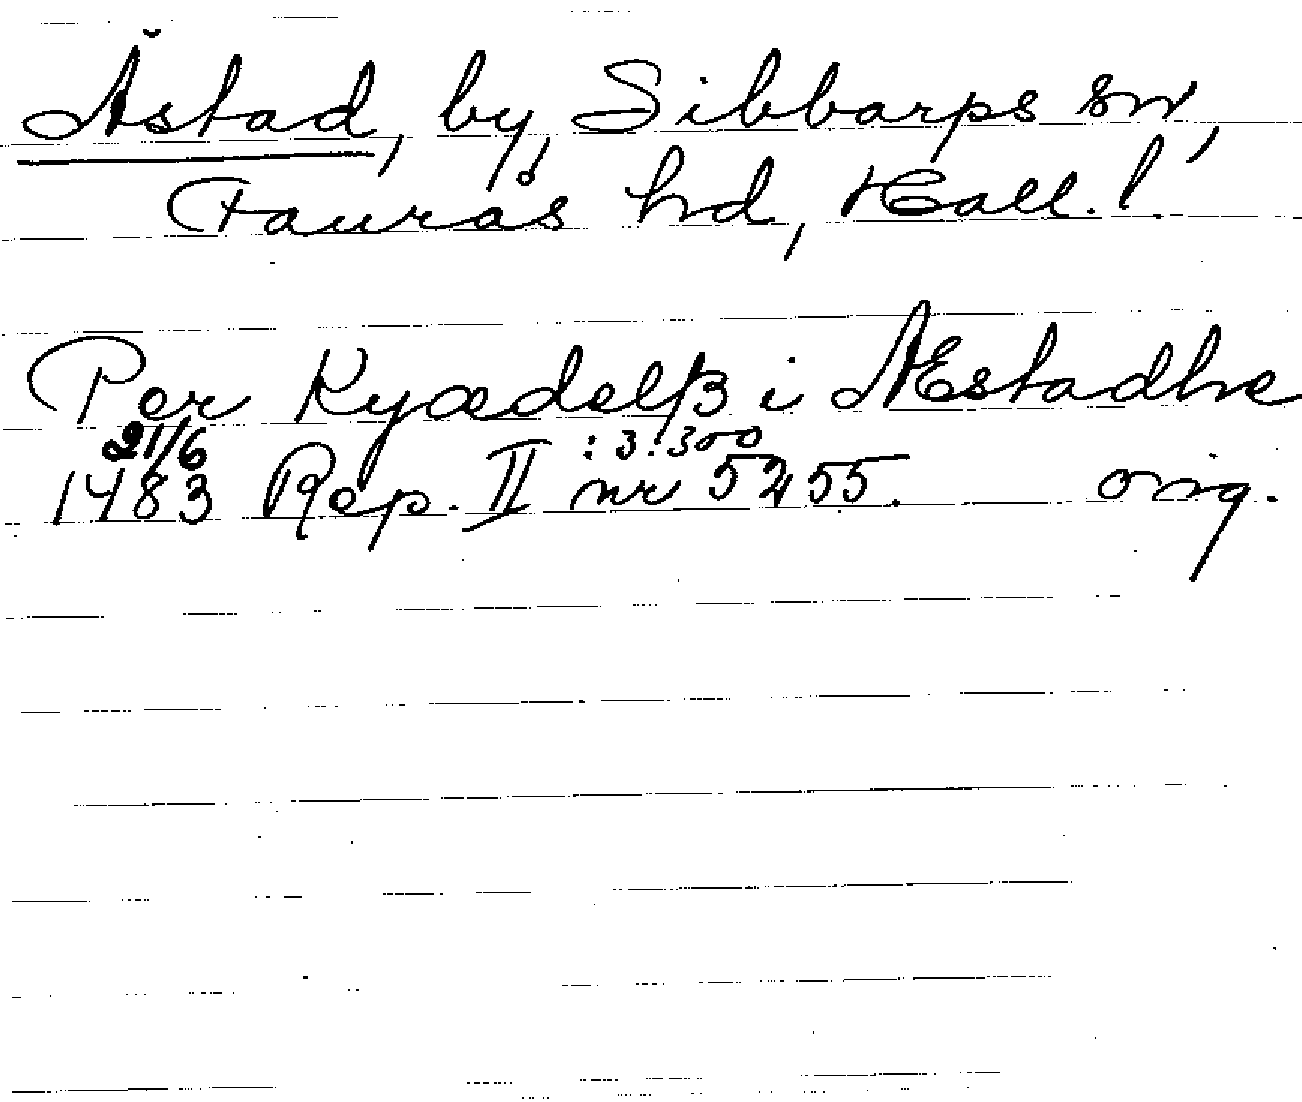 Åstad, by, Sibbarps sn,
Faurås hd, Hall. l.
Per Kyædelß i Æstadhe
21/6 :3:300
1483 Rep. II nr 5255. orig.